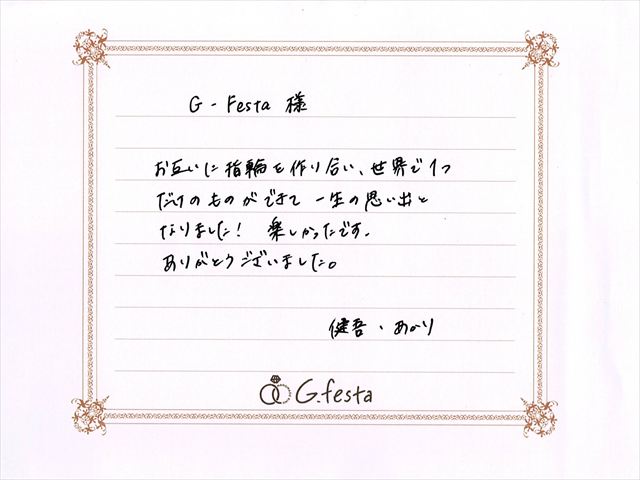 G - Festa 様
お互いに指輪を作り合い、世界で1つ
だけのものができて 一生の思い出と
なりました! 楽しかったです。
ありがとうございました。
健吾・あかり
G.festa